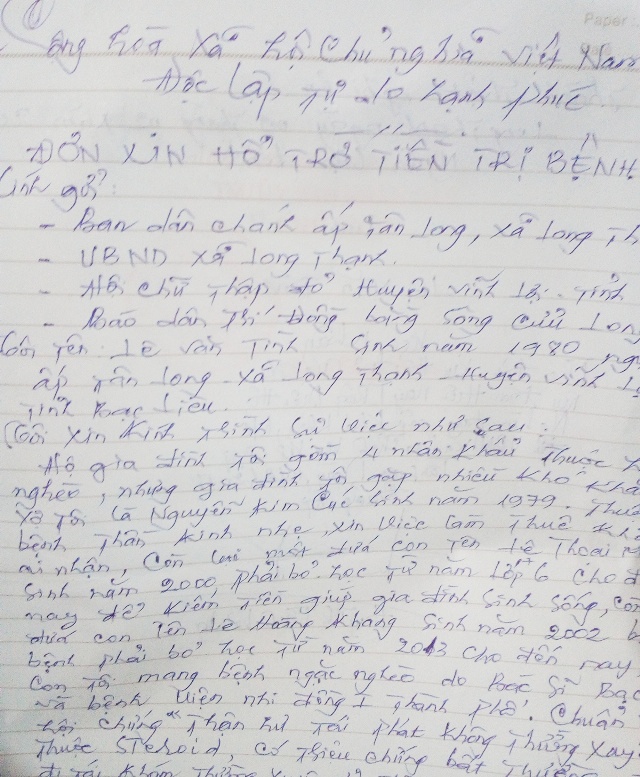 Paper
Cộng hòa Xã hội Chủ nghĩa Việt Nam
Độc lập Tự do hạnh phúc
ĐƠN XIN HỔ TRỢ TIỀN TRỊ BỆNH
Kính gửi:
- Ban dân chánh ấp Tân Long, xã Long Th
- UBND xã Long Thạnh.
- Hội chữ Thập đỏ Huyện Vĩnh Lợi. Tỉnh
- Báo dân trí Đồng bằng Sông Cửu Long
Tôi tên: Lê Văn Tính Sinh năm 1970
ấp Tân Long - xã Long Thạnh - Huyện Vĩnh L
Tỉnh Bạc Liêu.
Tôi xin kính trình sự việc như sau:
Hộ gia đình tôi gồm 4 nhân khẩu Thuộc
nghèo, nhưng gia đình tôi gặp nhiều khó khă
Vợ tôi là Nguyễn Kim Cúc sinh năm 1979.
bệnh Thần kinh nhẹ, xin việc làm Thuê
nhận, còn một đứa con tên Lê Thoại
Sinh năm 2000 phải bỏ học từ năm lớp 6 cho đ
nay để kiếm tiền giúp gia đình sinh sống, cò
đứa con tên Lê Hoàng Khang sinh năm 2002 b
bệnh phải bỏ học từ năm 2013 cho đến nay
con tôi mang bệnh ngặc nghèo do Bác Sĩ Bạc
và bệnh viện nhi đồng 1 Thành phố. Chuẩn
hội chứng Thận hư tái phát không thường xuy
Thuốc Steroid, có triệu chứng bất Thườ
đi tái khám thường